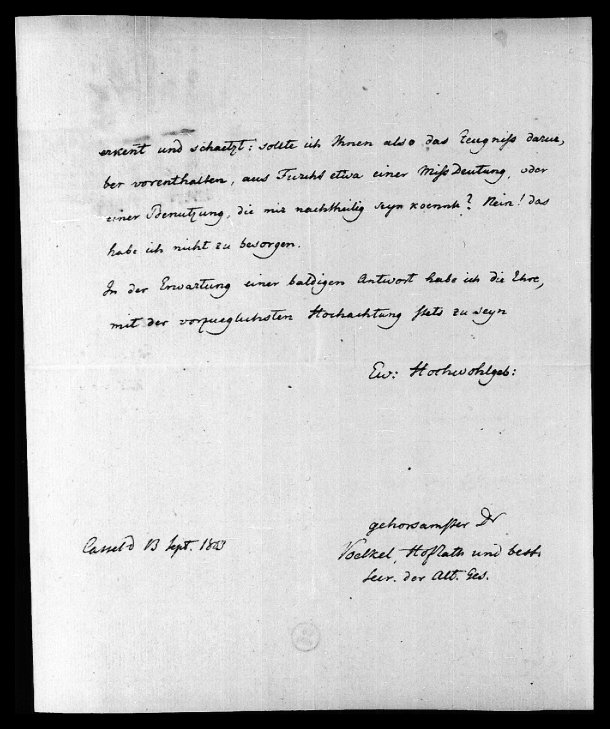 erkent und schaetzt: sollte ich Ihnen also das Zeugniß darue,
ber vorenthalten, aus Furcht etwa einer Miß Deutung, oder
einer Benutzung, die mir nachtheilig seyn koennte? Nein! das
habe ich nicht zu besorgen.
In der Erwartung einer baldigen Antwort habe ich die Ehre,
mit der vorzueglichsten Hochachtung stets zu seyn
Ew: Hochwohlgeb:
gehorsamster Dr
Cassel d 13 Sept.
Voelkel, Hofrath und best.
Secr. der Alt. Ges.